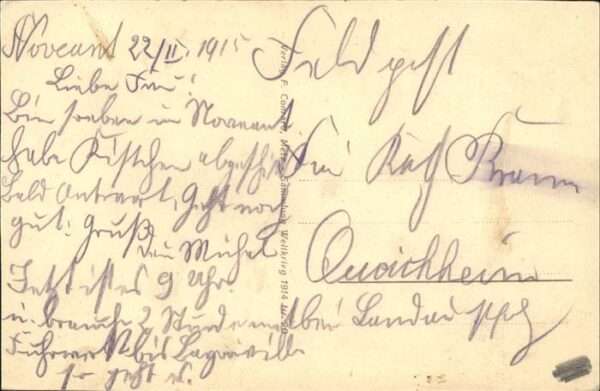 Noveant 22/II. 1915
Liebe Frau!
Bin soeben in Noveant.
habe Kistchen abgeschickt
Bald Antwort, Geht noch
gut. Gruß
Dein Michel
Jetzt ist es 9 Uhr.
u. brauche 2 Stunden mit
Fuhrwerk bis
so geht es.
Verlag F. Metz. Weltkrieg 1914
Feldpost
Frau Kath Braun
Queichheim
bei Landau Pfalz